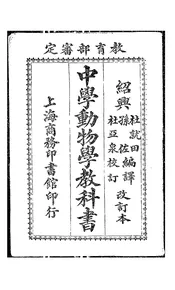 教育部審定
紹興
杜就田
孫佐
編譯
杜亞泉校訂
改訂本
中學動物學教科書
上海商務印書館印行